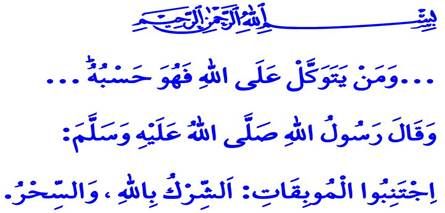 بِسْمِ اللهِ الرَّحْمٰنِ الرَّحِيمِ
...وَمَنْ يَتَوَكَّلْ عَلَى اللهِ فَهُوَ حَسْبُهُۜ ...
وَقَالَ رَسُولُ اللهِ صَلَّى اللهُ عَلَيْهِ وَسَلَّمَ:
اِجْتَنِبُوا الْمُوبِقَاتِ: اَلشِّرْكُ بِاللهِ ، وَالسِّحْرُ.